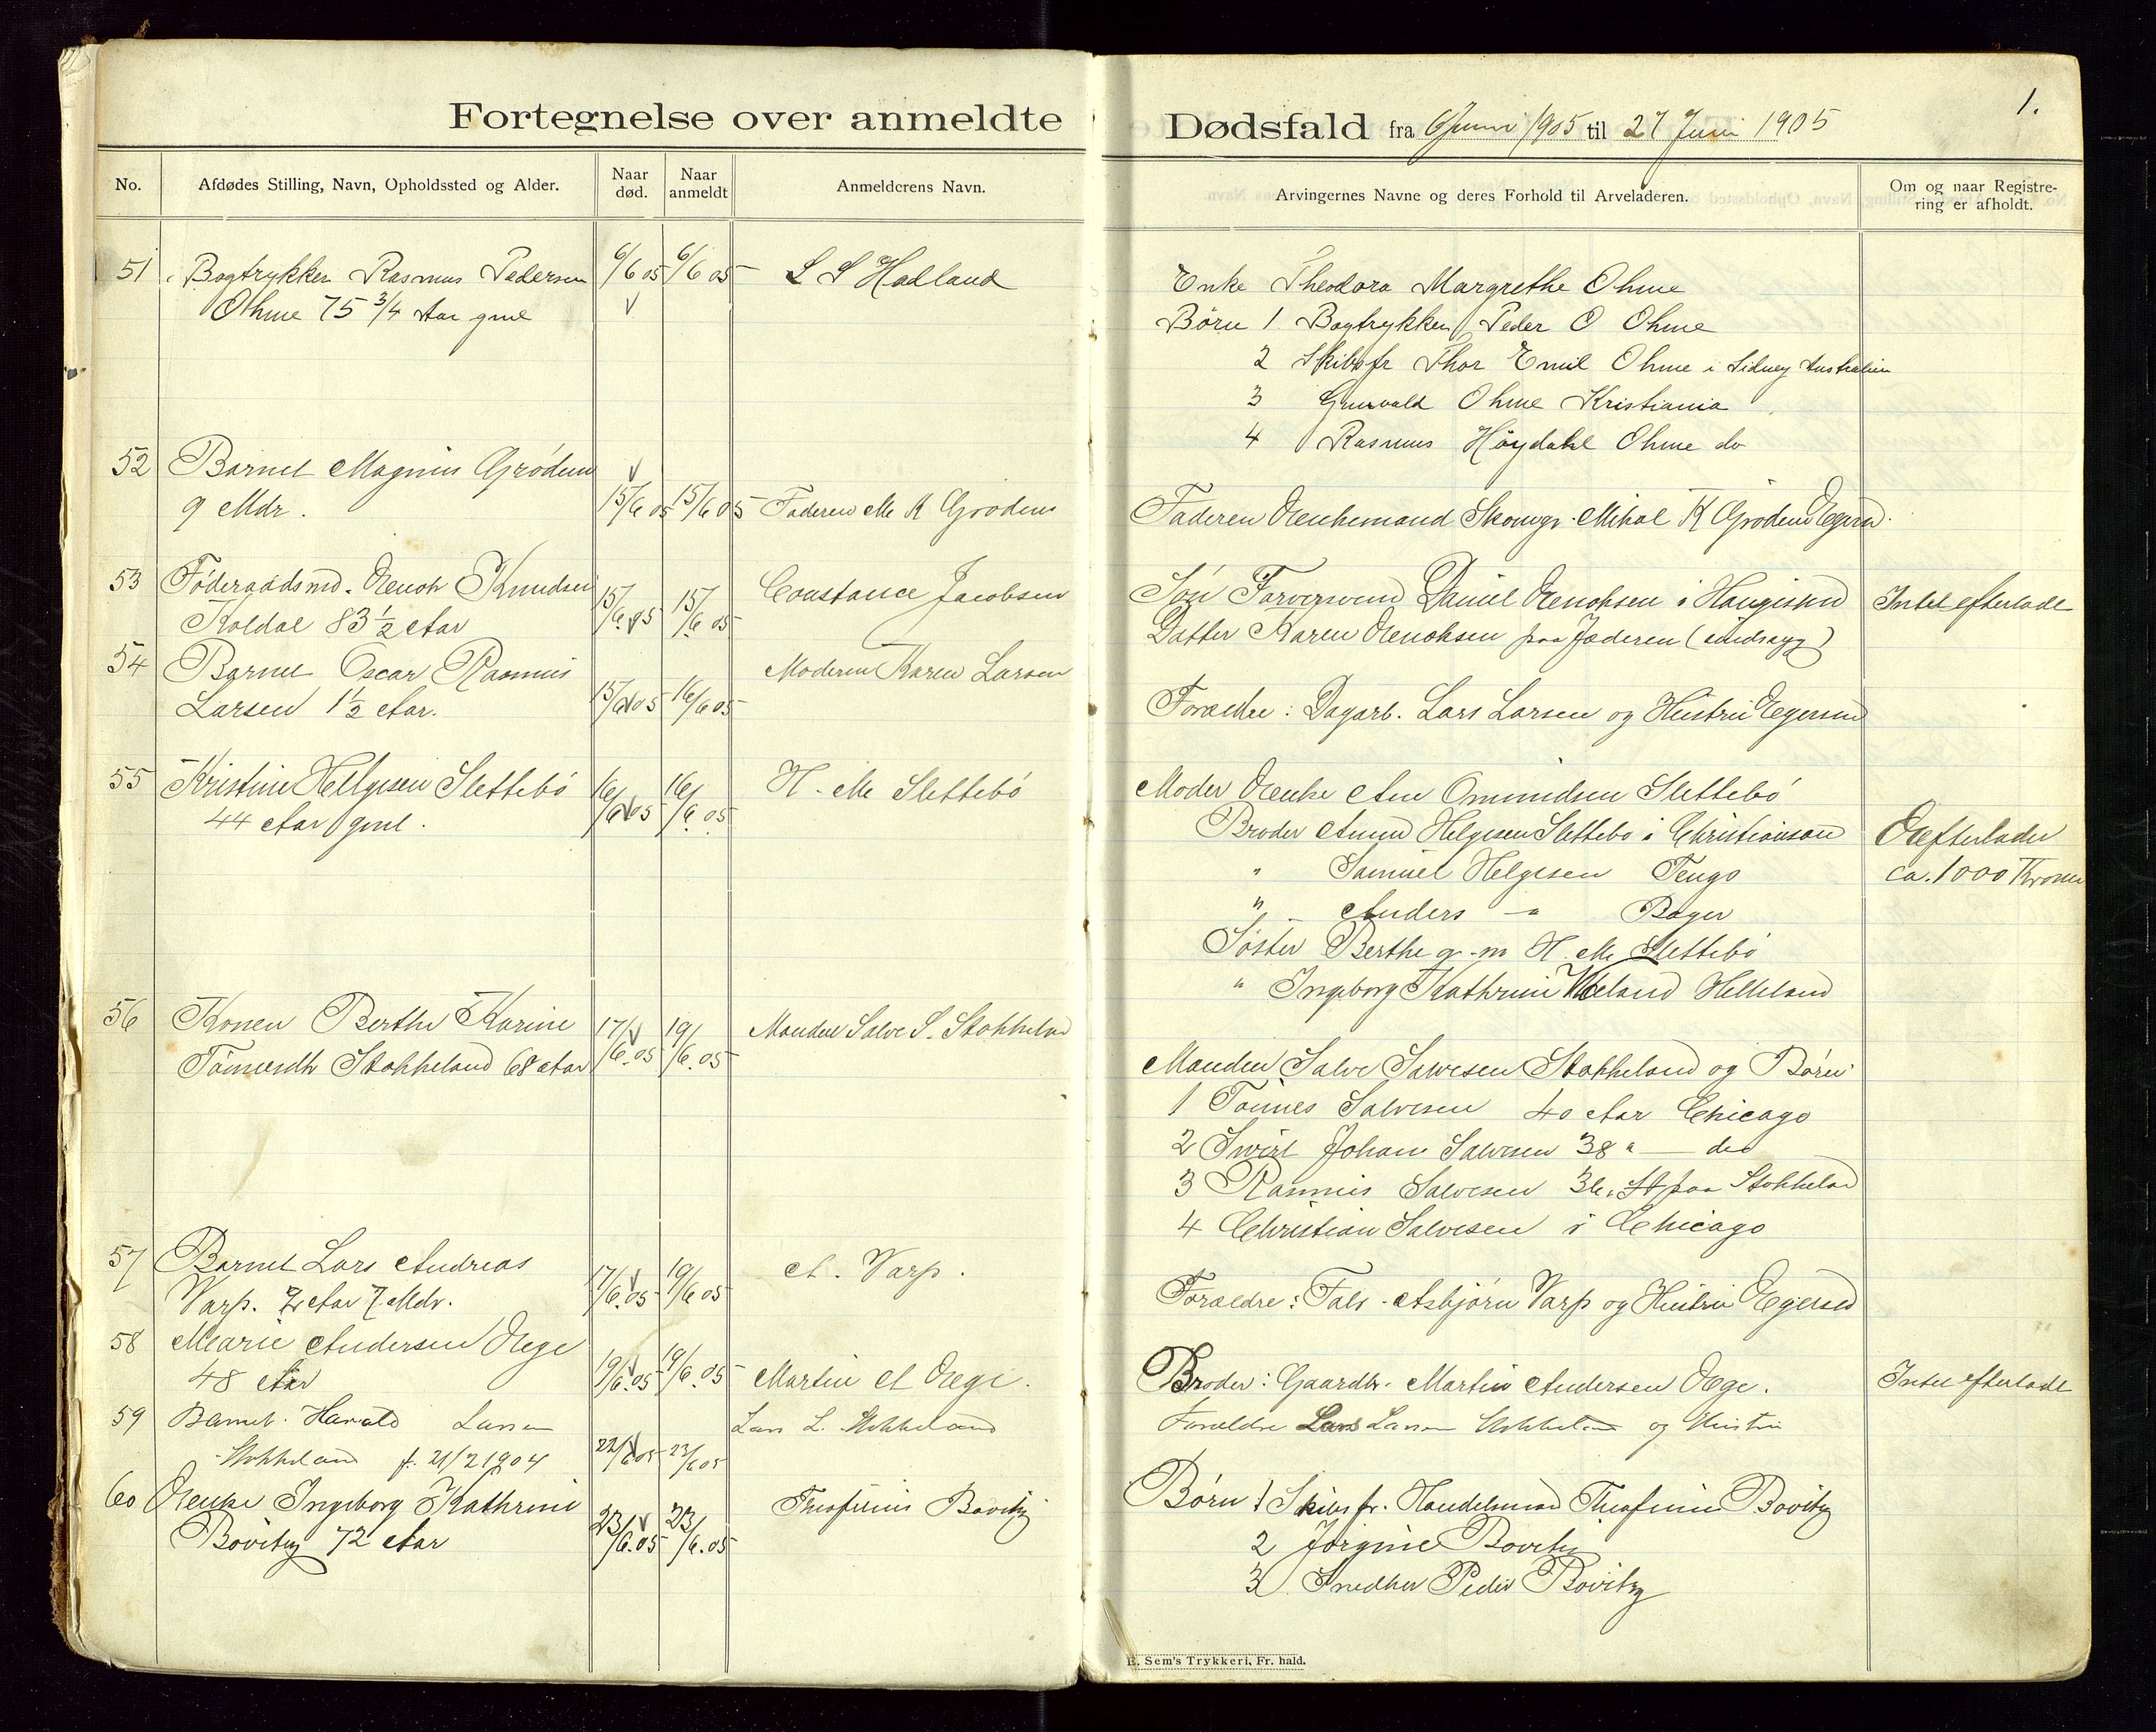 Fortegnelse over anmeldte Dødsfald fra 6 Juni 1905 til 27 Juni 1905
1.
No.
Afdødes Stilling, Navn, Opholdssted og Alder.
Naar død.
Naar anmeldt
Anmelderens Navn.
Arvingernes Navne og deres Forhold til Arveladeren.
Om og naar Registrering er afholdt.
51 Bogtrykker Rasmus Pedersen 6/6 05 6/6 05 L S Hadland
Ohme 75 3/4 Aar gml
Enke Theodora Margrethe Ohme
Børn 1 Bogtrykker Peder O Ohme
2 Skibsfr Thor Emil Ohme i Sidney Australien
3 Grunvald Ohme Kristiania
4 Rasmus Høydahl Ohme do
52 Barnet Magnus Grødem
9 Mdr. 15/6 05 15/6 05 Faderen M K Grødem
Faderen Enkemand Mikal K Grødem
53 Føderaadsmd. Enok Knudsen 15/6 05 15/6 05 Constance Jacobsen
Koldal 83 1/2 Aar
Søn Farversvend Daniel Enoksen i Haugesund Intet efterladt
Datter Karen Enoksen paa Jæderen (sindssyg)
54 Barnet Oscar Rasmus Moderen Karen Larsen
Larsen 1 1/2 Aar. 15/6 05 16/6 05
Forældre: Dagarb. Lars Larsen og Hustru Egersund
55 Kristine Helgesen Slettebø 16/6 05 16/6 05 H. M Slettebø
44 Aar gml.
Moder Enke Ane Omundsen Slettebø
Broder Helgesen Slettebø i Christianssand Efterlader
" Samuel Helgesen Tengs ca. 1000 Kroner
" Anders — " Bøger
Søster Berthe g. m H. M. Slettebø
" Ingeborg Kathrine Helleland
56 Konen Berthe Karine 17/6 05 19/6 05 Manden Salve S. Stokkeland
Tønnesdtr Stokkeland 68 Aar
Manden Salve Salvesen Stokkeland og Børn
1 Tønnes Salvesen 40 Aar Chicago
2 Johan Salvesen 38 " — do
3 Rasmus Salvesen 36 " paa Stokkeland
4 Christian Salvesen i Chicago
57 Barnet Lars Andreas 17/6 05 19/6 05 A. Varp.
Varp. 2 Aar 7 Mdr.
Forældre: Asbjørn Varp og Hustru Egersund
58 Marie Andersen Ege
48 Aar 19/6 05 19/6 05 Martin A Ege.
Broder: Gaardbr. Martin Andersen Ege. Intet efterladt
59 Barnet Harald Larsen Lars L. Stokkeland
Stokkeland f. 21/2 1904 22/6 05 23/6 05
Forældre Lars Larsen Stokkeland og Hustru
60 Enke Ingeborg Kathrine 23/6 05 23/6 05 Theofinius Bovitz
Bovitz 72 Aar
Børn 1 Skibsfr. Handelsmand Theofinius Bovitz
2 Jørgine Bovitz
3 Snedker Peder Bovitz
E. Sem's Trykkeri, Fr. hald.